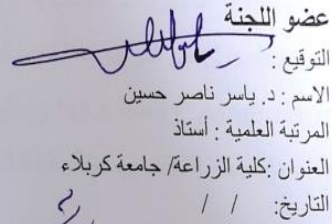 عضو اللجنة
التوقيع :
الاسم : د. ياسر ناصر حسين
المرتبة العلمية : أستاذ
العنوان :كلية الزراعة/ جامعة كربلاء
التاريخ: / /